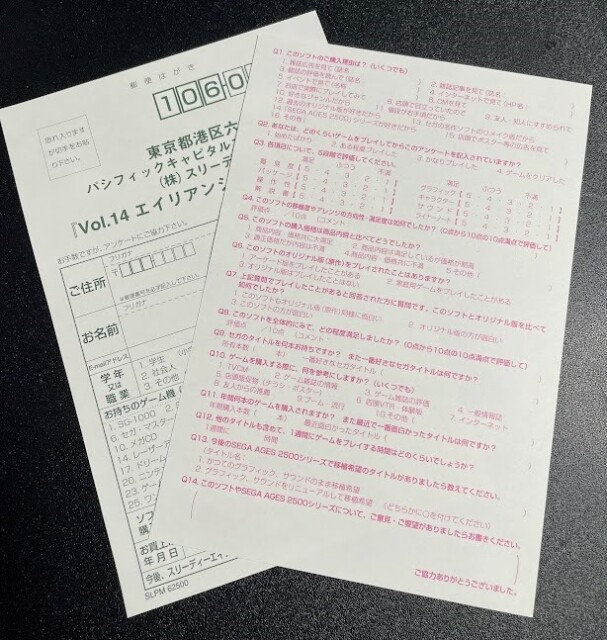 郵便はがき
1060
恐れ入ります
が切手をお貼
り下さい。
東京都港区六
パシフィックキャピタル
(株)スリーデ
『Vol.14 エイリアンシ
お手数ですが、アンケートにご協力下さい。
フリガナ
〒
ご住所
※郵便番号を必ず記入して下さい。
フリガナ
お名前
E-mailアドレス
学年
又は
職業
1. 学生
2. 社会人
3. その他
お持ちのゲーム機
1. SG-1000
6. セガ・マスタ
10. メガCD
14. レーザ
17. ドリーム
20. ニンテン
23. ゲーム
25. ワン
ソフ
購入
お買上
年月日
今後、スリーディーエイ
SLPM 62500
Q1. このソフトのご購入理由は?(いくつでも)
1. 雑誌広告を見て(誌名:
2. 雑誌記事を見て(誌名
3. 雑誌の評価を読んで(誌名
4. インターネットで見て(HP名:
5. イベントで見て(名称
6. CMを見て
7. お店で実際にプレイしてみて
8. 店頭で目立っていたので
9. 友人、知人にすすめられて
10. 好きなジャンルだから
11. 機種がお手頃だから
12. 過去のオリジナル版が好きだから
13. セガの名作ソフトのリメイク版だから
14. 「SEGA AGES 2500」シリーズが好きだから
15. 店頭でポスター等の広告を見て
16. その他(
Q2. あなたは、どのくらいゲームをプレイしてからこのアンケートを記入されていますか?
1. 始めたばかり
2. ある程度プレイした
3. かなりプレイした
4. ゲームをクリアした
Q3. 各項目について、5段階で評価してください。
満足 ふつう 不満
満足 ふつう 不満
難易度【 5 ・ 4 ・ 3 ・ 2 ・ 1 】
グラフィック【 5 ・ 4 ・ 3 ・ 2 ・ 1 】
パッケージ【 5 ・ 4 ・ 3 ・ 2 ・ 1 】
キャラクター【 5 ・ 4 ・ 3 ・ 2 ・ 1 】
操作性【 5 ・ 4 ・ 3 ・ 2 ・ 1 】
サウンド【 5 ・ 4 ・ 3 ・ 2 ・ 1 】
説明書【 5 ・ 4 ・ 3 ・ 2 ・ 1 】
ライナーノート【 5 ・ 4 ・ 3 ・ 2 ・ 1 】
Q4. このソフトの移植度やアレンジの方向性・満足度は如何でしたか?(0点から10点の10点満点で評価して)
評価点 /10点 □コメント
Q5. このソフトの購入価格は商品内容と比べてどうでしたか?
1. 商品内容、価格共に大満足
2. 商品内容は満足しているが価格が割高
3. 適正価格だが内容は不満
4. 商品内容・価格共に不満
5. その他(
Q6. このソフトのオリジナル版(原作)をプレイされたことはありますか?
1. アーケード版をプレイしたことがある
2. 家庭用ゲームをプレイしたことがある
3. オリジナル版はプレイしたことはない
Q7. 上記質問でプレイしたことがあると回答された方に質問です。このソフトとオリジナル版を比べて
如何でしたか?
1. このソフトもオリジナル版(原作)同様に面白い
2. オリジナル版の方が面白い
3. このソフトの方が面白い
Q8. このソフトを全体的にみて、どの程度満足しましたか?(0点から10点の10点満点で評価して)
評価点 /10点 □コメント
Q9. セガのタイトルを何本お持ちですか? また一番好きなセガタイトルは何ですか?
所有本数( 本) 一番好きなセガタイトル(
Q10. ゲームを購入する際に、何を参考にしますか?(いくつでも)
1. TV/CM
2. ゲーム雑誌の情報
3. ゲーム雑誌の評価
4. 一般情報誌
5. 店頭販促物(チラシ・ポスター)
6. 店頭デモ・体験版
7. インターネット
8. 友人からの推薦
9. ブーム・流行
10. その他(
Q11. 年間何本のゲームを購入されますか? また最近で一番面白かったタイトルは何ですか?
年間購入本数( 本) 最近面白かったタイトル(
Q12. 他のタイトルも含めて、1週間にゲームをプレイする時間はどのくらいでしょうか?
1週間に 時間
Q13. 今後のSEGA AGES 2500シリーズで移植希望のタイトルがありましたら教えてください。
(タイトル名:
1. かつてのグラフィック、サウンドのまま移植希望
2. グラフィック、サウンドをリニューアルして移植希望 (どちらかに○を付けてください)
Q14. このソフトやSEGA AGES 2500シリーズについて、ご意見・ご要望がありましたらお書きください。
ご協力ありがとうございました。